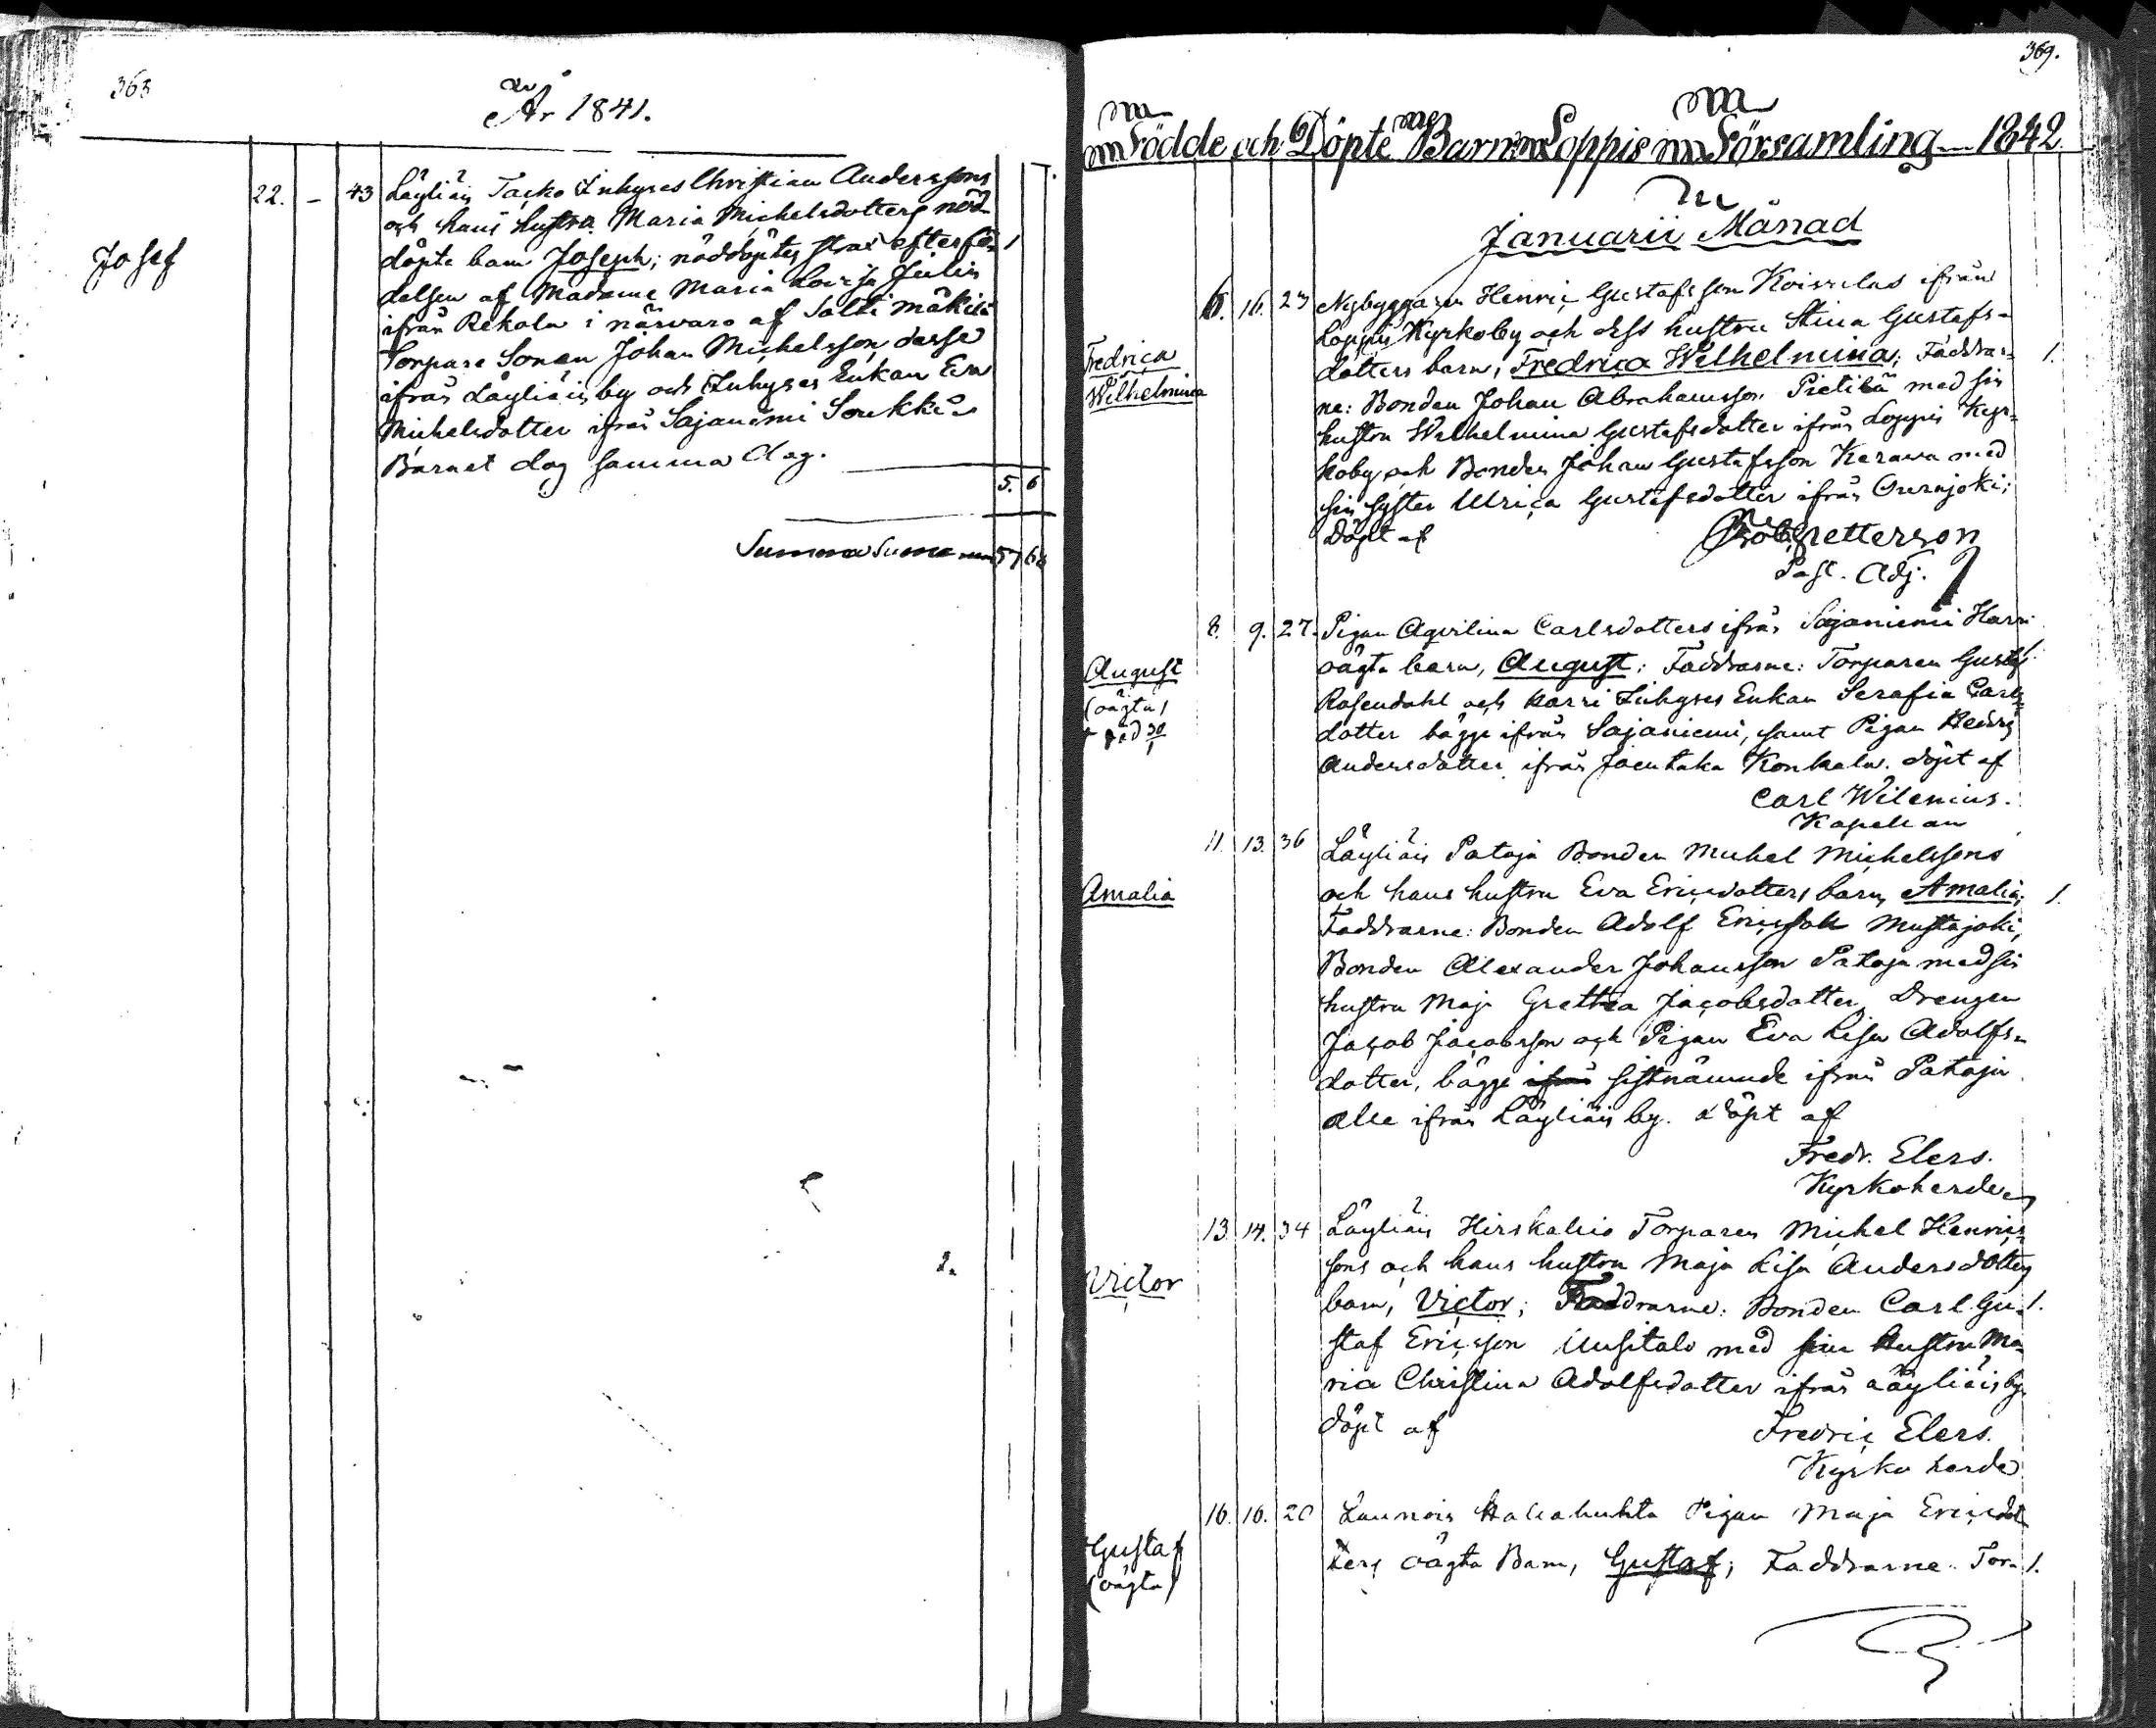 368
År 1841.
Josef
22. – 43 Läyliäis Tacko Inhyses Christian Anderssons
och hans hustru Maria Michelsdotters nöd
döpte barn Joseph; nöddöptes strax efter fö- 1
delsen af Madame Maria Lovisa Julin
ifrån Rekola i närvaro af Salli mäkilä
Torpare Sonen Johan Michelsson desse
ifrån Läyliäis by och Inhyses Enkan Eva
Michelsdotter ifrån Sajaniemi Soukki
Barnet dog samma dag.
5. 6
Summa Summarum 57 68
369.
Födde och Döpte Barn Loppis Församling 1842.
Januarii Månad
6. 16. 23 Nybyggaren Henric Gustafsson Koivulas ifrån
Loppis Kyrkoby och dess hustru Stina Gustafs-
Fredrica
Wilhelmina
dotters barn, Fredrica Wilhelmina; Faddrar- 1.
ne: Bonden Johan Abrahamsson Pietilä med sin
hustru Wilhelmina Gustafsdotter ifrån Loppis Kyr-
koby och Bonden Johan Gustafsson Kerawa med
sin syster Ulrica Gustafsdotter ifrån Ourajoki;
Döpt af Petterson
Past. Adj.
8. 9. 27. Pigan Aqvilina Carlsdotters ifrån Sajaniemi Harri
August
(oägta)
† död 30/1
oägta barn, August; Faddrarne: Torparen Gustaf 1.
Rosendahl och Karri Inhyses Enkan Serafia Carls-
dotter bägge ifrån Sajaniemi, samt Pigan Hedvig
Andersdotter ifrån Joentaka Konkala. döpt af
Carl Wilenius.
Kapellan
11. 13. 36 Läyliäis Pataja Bonden Michel Michelssons
Amalia
och hans hustru Eva Ericsdotters barn, Amalia; 1.
Faddrarne: Bonden Adolf Ericsson Mustajoki,
Bonden Alexander Johansson Pataja med sin
hustru Maja Grettha Jacobsdotter, Drengen
Jacob Jacobsson och Pigan Eva Lisa Adolfs-
dotter, bägge ifrån sistnämnde ifrån Pataja
alla ifrån Läyliäis by. döpt af
Fredr. Elers.
Kyrkoherde
13. 14. 34 Läyliäis Hirskallio Torparen Michel Henrics-
Victor
sons och hans hustru Maja Lisa Andersdotters
barn, Victor; Faddrarne: Bonden Carl Gu- 1.
staf Ericsson Uusitalo med sin hustru Ma-
ria Christina Adolfsdotter ifrån Läyliäis by.
döpt af Fredric Elers.
Kyrko herde
16. 16. 20 Launois Pigan Maja Ericsdot
Gustaf
(oägta)
ters oägta Barn, Gustaf; Faddrarne: Tor- 1.